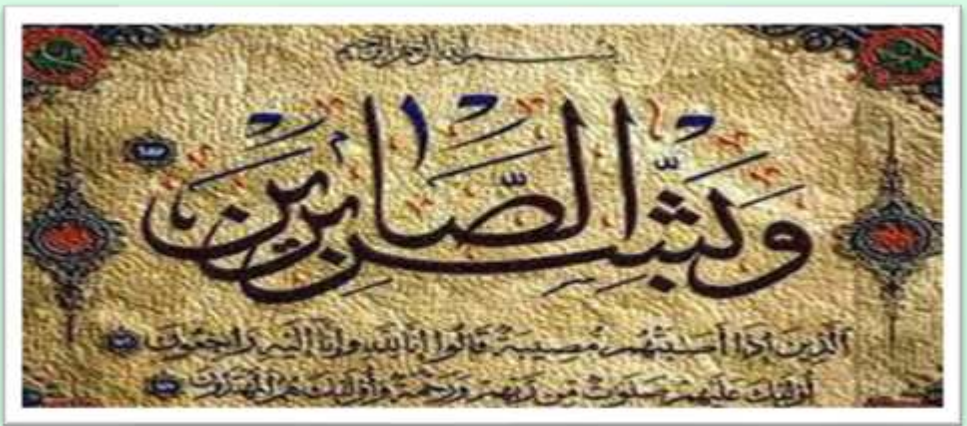 بسم الله الرحمن الرحيم
وَبَشِّرِ الصَّابِرِينَ
الَّذِينَ إِذَا أَصَابَتْهُم مُّصِيبَةٌ قَالُوا إِنَّا لِلَّهِ وَإِنَّا إِلَيْهِ رَاجِعُونَ
أُولَٰئِكَ عَلَيْهِمْ صَلَوَاتٌ مِّن رَّبِّهِمْ وَرَحْمَةٌ وَأُولَٰئِكَ هُمُ الْمُهْتَدُونَ